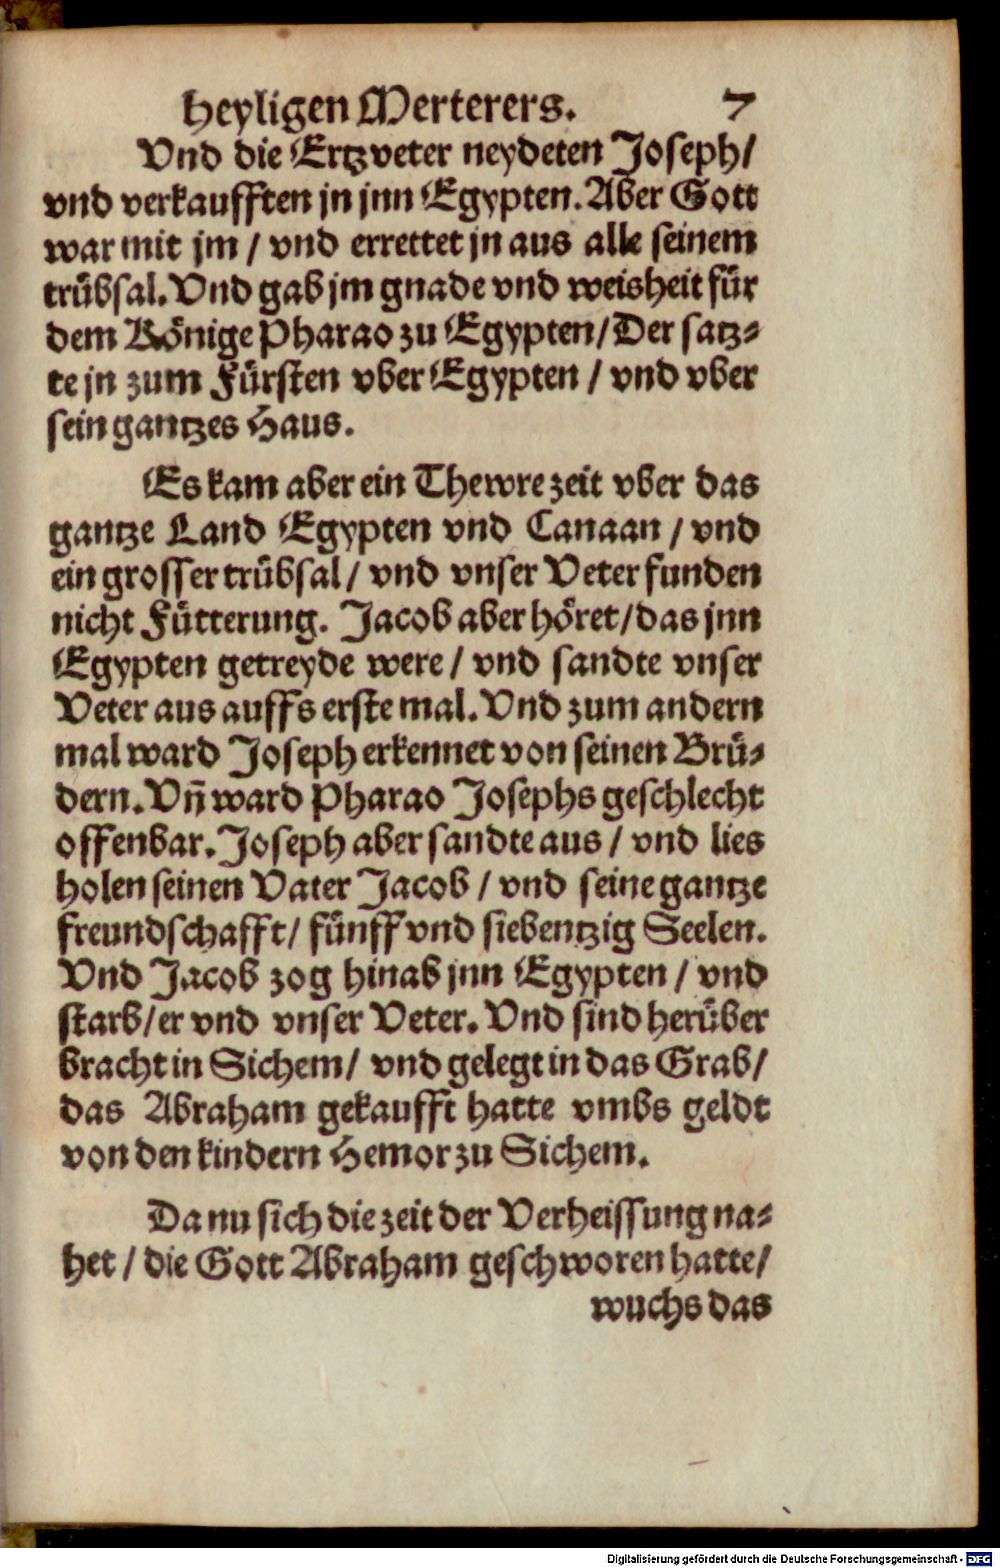 heyligen Merterers. 7
Vnd die Ertzveter neydeten Joseph/
vnd verkaufften jn jnn Egypten. Aber Gott
war mit jm / vnd errettet jn aus alle seinem
trübsal. Vnd gab jm gnade vnd weisheit für
dem Könige Pharao zu Egypten/ Der satz⸗
te jn zum Fürsten vber Egypten / vnd vber
sein gantzes Haus.
Es kam aber ein Thewre zeit vber das
gantze Land Egypten vnd Canaan / vnd
ein grosser trübsal/ vnd vnser Veter funden
nicht Fütterung. Jacob aber höret/ das jnn
Egypten getreyde were / vnd sandte vnser
Veter aus auffs erste mal. Vnd zum andern
mal ward Joseph erkennet von seinen Brü⸗
dern. Vñ ward Pharao Josephs geschlecht
offenbar. Joseph aber sandte aus / vnd lies
holen seinen Vater Jacob / vnd seine gantze
freundschafft/ fünff vnd siebentzig Seelen.
Vnd Jacob zog hinab jnn Egypten / vnd
starb/ er vnd vnser Veter. Vnd sind herüber
bracht in Sichem/ vnd gelegt in das Grab/
das Abraham gekaufft hatte vmbs geldt
von den kindern Hemor zu Sichem.
Da nu sich die zeit der Verheissung na⸗
het / die Gott Abraham geschworen hatte/
wuchs das
Digitalisierung gefördert durch die Deutsche Forschungsgemeinschaft - DFG